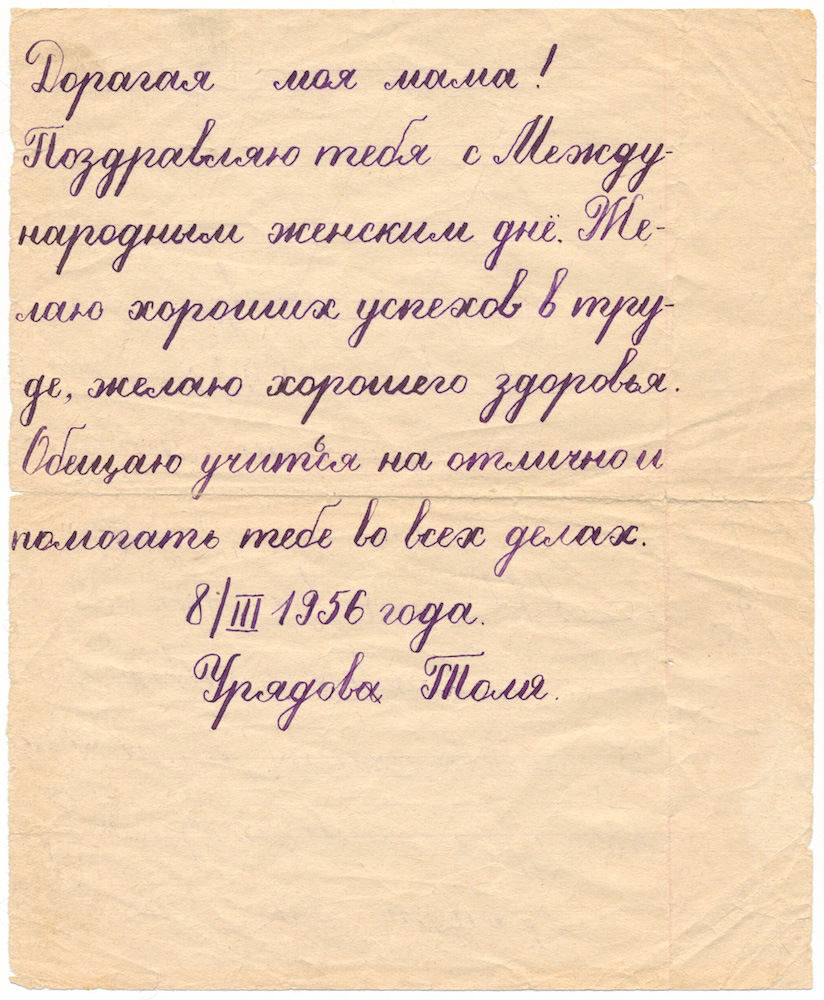 Дорагая моя мама!
Поздравляю тебя с Между-
народным женским днё. Же-
лаю хороших успехов в тру-
де, желаю хорошего здоровья.
Обещаю учиться на отлично и
помогать тебе во всех делах.
8/III 1956 года.
Урядова Толя.